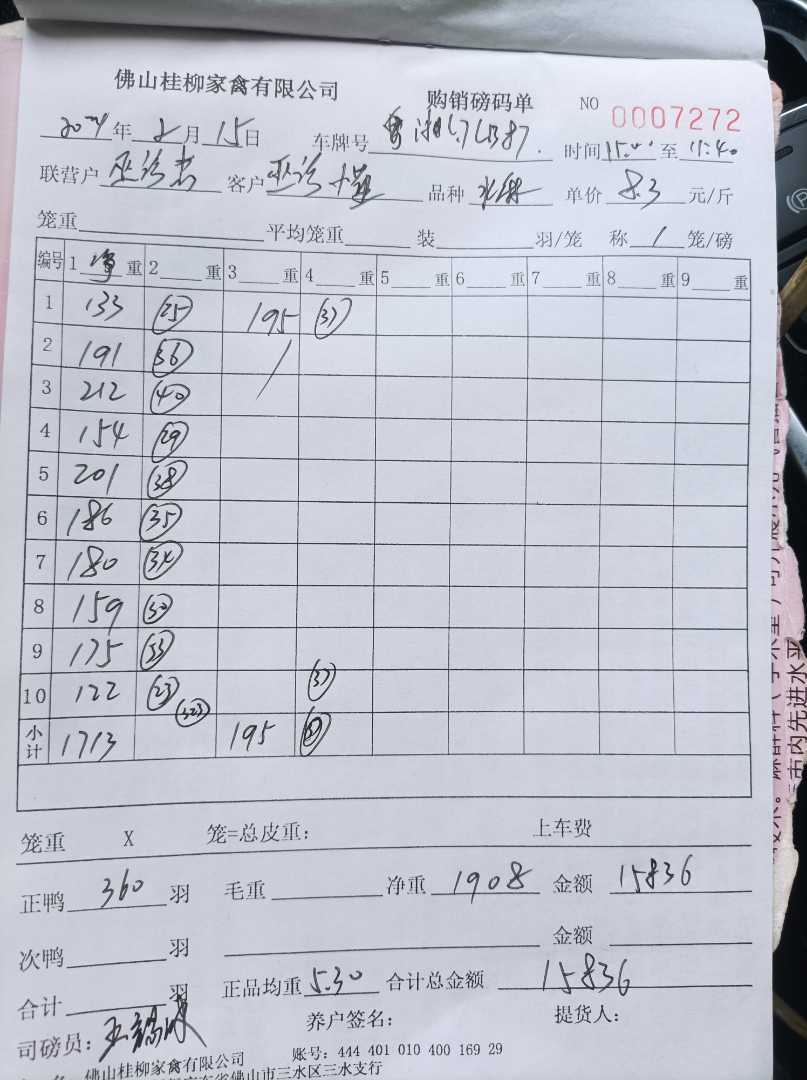 佛山桂柳家禽有限公司 购销磅码单 NO 0007272
年 2月15日 车牌号 时间15:00至15:40
联营户 客户 品种 单价8.3元/斤
笼重 平均笼重 装 羽/笼 称1笼/磅
编号 1净重 2 重 3 重 4 重 5 重 6 重 7 重 8 重 9 重
1 133 25 195 37
2 191 36
3 212 40
4 154 29
5 201 38
6 186 35
7 180 34
8 159 30
9 175 33
10 122 23 37
323
小计 1713 195
笼重 X 笼=总皮重: 上车费
正鸭360羽 毛重 净重1908 金额15836
次鸭 羽 金额
合计 羽 正品均重5.30 合计总金额15836
司磅员: 养户签名: 提货人:
佛山桂柳家禽有限公司 账号: 444 401 010 400 169 29
佛山市三水区三水支行
市内先进水平